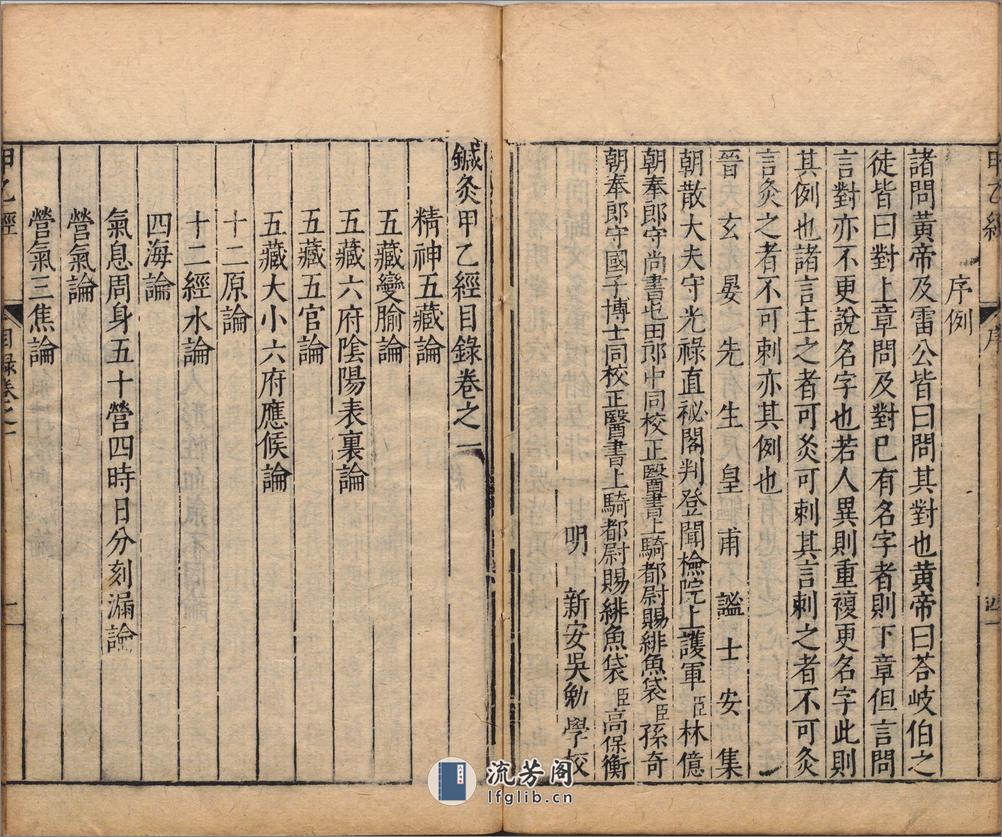 序例
諸問黃帝及雷公皆曰問其對也黃帝曰荅岐伯之
徒皆曰對上章問及對巳有名字者則下章但言問
言對亦不更說名字也若人異則重複更名字此則
其例也諸言主之者可灸可刺其言刺之者不可灸
言灸之者不可刺亦其例也
晉玄晏先生皇甫謐士安集
朝散大夫守光祿直祕閣判登聞檢院上護軍臣林億
朝奉郎守尚書屯田郎中同校正醫書上騎都尉賜緋魚袋臣孫奇
朝奉郎守國子博士同校正醫書上騎都尉賜緋魚袋臣高保衡
明新安吳勉學校
鍼灸甲乙經目錄卷之一
精神五藏論
五藏變腧論
五藏六府陰陽表裏論
五藏五官論
五藏大小六府應候論
十二原論
十二經水論
四海論
氣息周身五十營四時日分刻漏論
營氣論
營氣三焦論
甲乙經 目錄卷之一 一
流芳閣
lfglib.cn